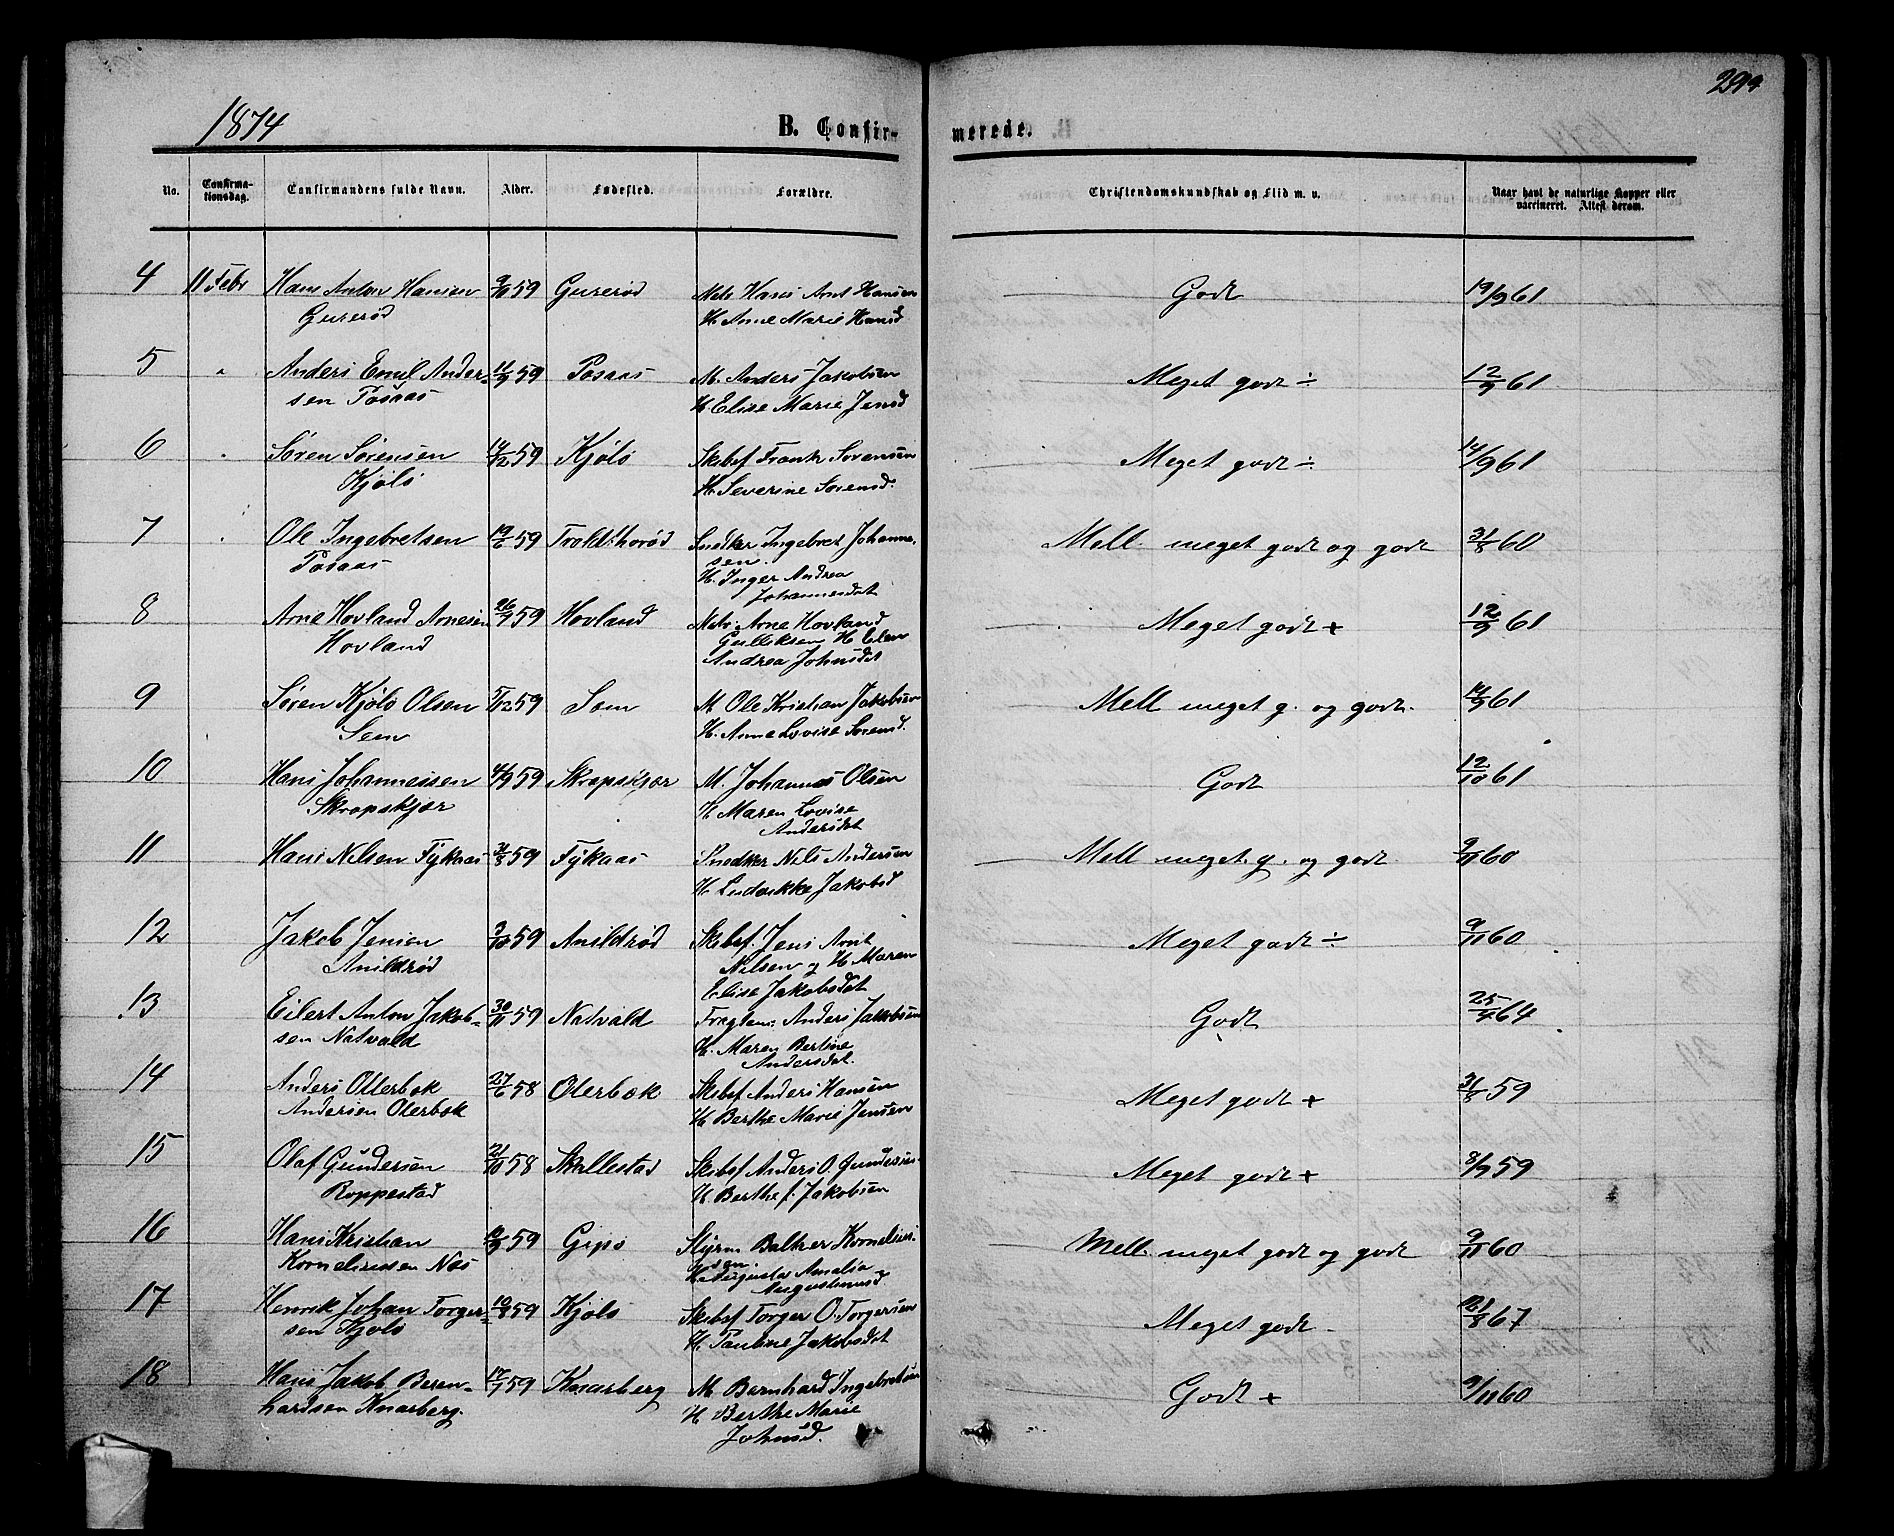 299
1874
B. Confir-
merede.
No. Confirma-tionsdag. Confirmandens fulde Navn. Alder. Fødested. Forældre. Christendomskundskab og Flid m. v. Naar havt de naturlige Kopper eller vaccineret. Attest derom.
4 11 Febr Hans Anton Hansen 59 Gurerød Matr Hans Ant Hansen Godt 19/9 61
Gurerød H. Anne Marie Hansd
5 " Anders Emil Ander- 11/9 59 Posaas M. Anders Jakobsen Meget godt ÷ 12/9 61
sen Posaas H Elise Marie Jensd
6 " Søren Sørensen 14/12 59 Kjøls Skibsf Frank Sørensen Meget godt ÷ 14/9 61
Kjøls H. Severine Sørensd.
7 " Ole Ingebretsen 19/6 59 Troldthorød Snedker Ingebret Johanne- Mell. meget godt og godt 31/8 60
Posaas sen.
H. Inger Andrea
Johannesdat
8 Arne Hovland Arnesen 26/7 59 Hovland Matr. Arne Hovland Meget godt + 12/9 61
Hovland Gulleksen H Elen
Andrea Johnsdat
9 Søren Kjøls Olsen 5/12 59 Sem M Ole Kristian Jakobsen Mell meget g. og godt. 14/9 61
Sem H. Anne Lovise Sørensd.
10 Hans Johannessen 4/9 59 Skropskjær M. Johannes Olsen Godt 12/10 61
Skropskjær H Maren Lovise
Andersdat
11 Hans Nilsen Fykaas 31/8 59 Fykaas Snedker Nils Andersen Mell meget g. og godt 9/11 60
H Ludvikke Jakobsd
12 Jakob Jensen 3/10 59 Anildrød Skibsf. Jens Arnt Meget godt ÷ 9/11 60
Anildrød Nilsen og H Maren
Elise Jakobsdat
13 Eilert Anton Jakob- 30/11 59 Natvald Anders Jakobsen Godt 25/4 64
sen Natvald H. Maren Bertine
Andersdat.
14 Anders Ollerbæk 27/6 58 Olerbæk Skibsf Anders Hansen Meget godt + 31/8 59
Andersen Olerbæk H Berthe Marie Jensen
15 Olaf Gundersen 21/10 58 Skallestad Skibsf Anders O. Gundersen Meget godt + 8/9 59
Roppestad H. Berthe f. Jakobsen
16 Hans Kristian 12/9 59 Gipø Styrm Baltzer Kornelius- Mell. meget godt og godt 9/11 60
Korneliussen Næs sen.
H Augusta Amalia
Augustinusd
17 Henrik Johan Torger- 10/8 59 Kjøls Skibsf Torger O. Torgersen Meget godt - 67
sen Kjøls H. Pauline Jakobsdat
18 Hans Jakob Beren- 17/7 59 Knarberg M Bernhard Ingebretsen Godt + 9/11 60
hardsen Knarberg. H Berthe Marie
Johnsd.